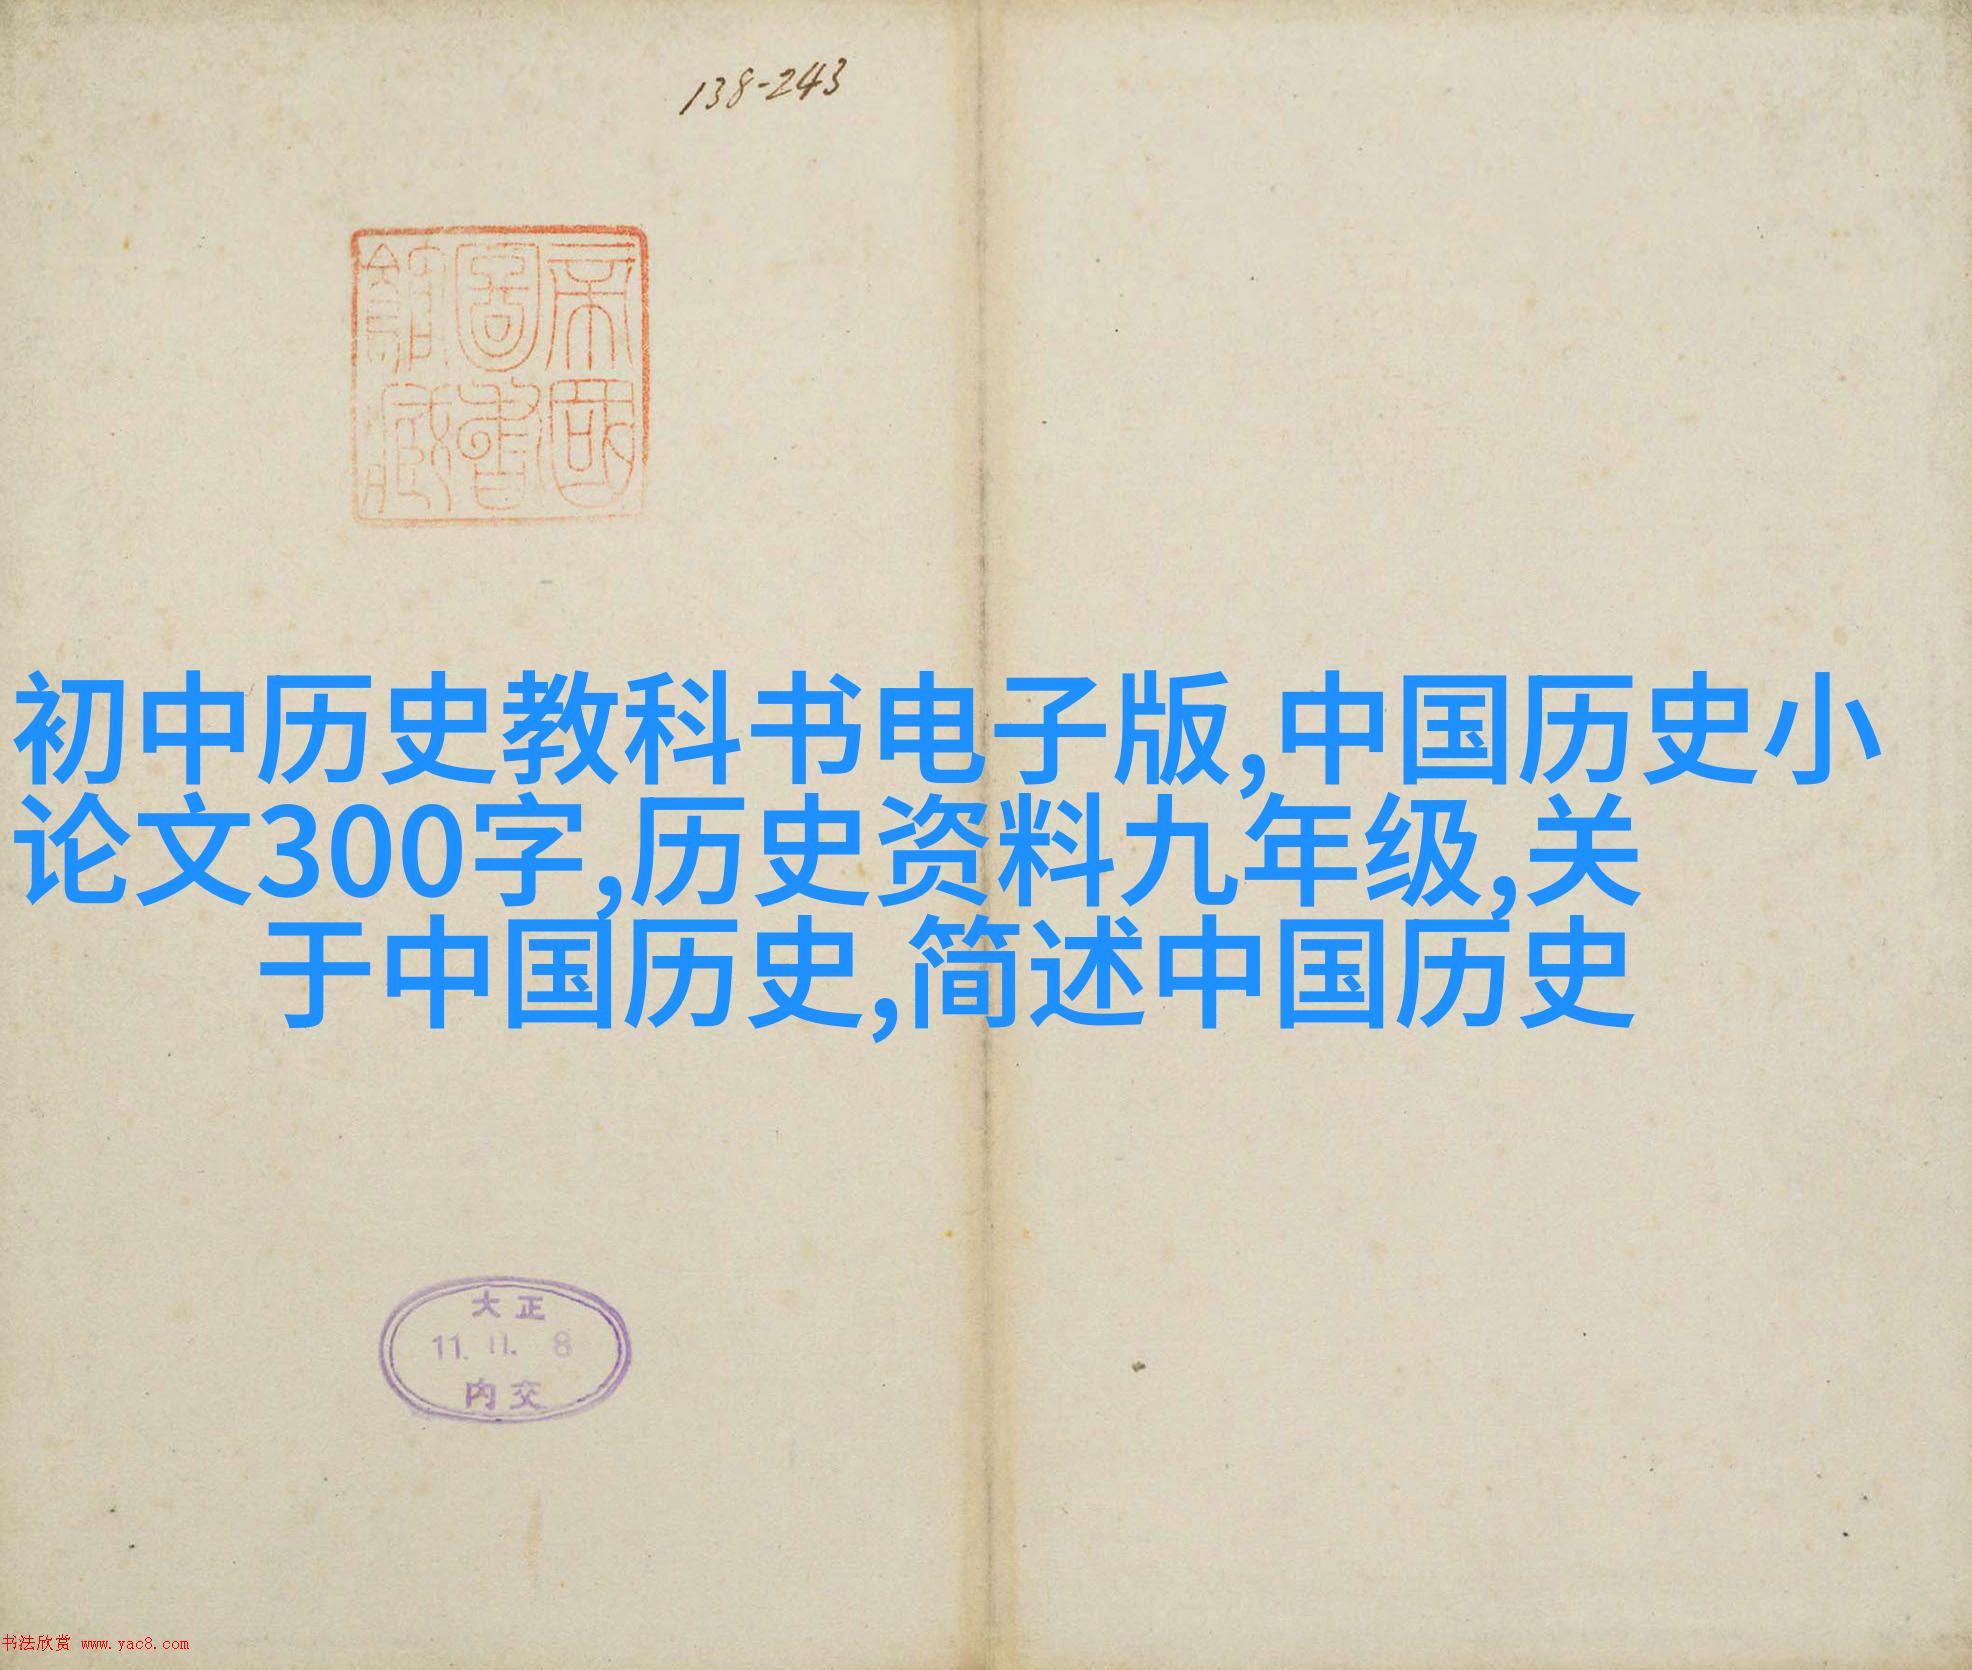 138-243
帝國
圖書
館藏
初中历史教科书电子版,中国历史小
论文300字,历史资料九年级,关
于中国历史,简述中国历史
大正
11. 11. 8
内交
书法欣赏 www.yac8.com